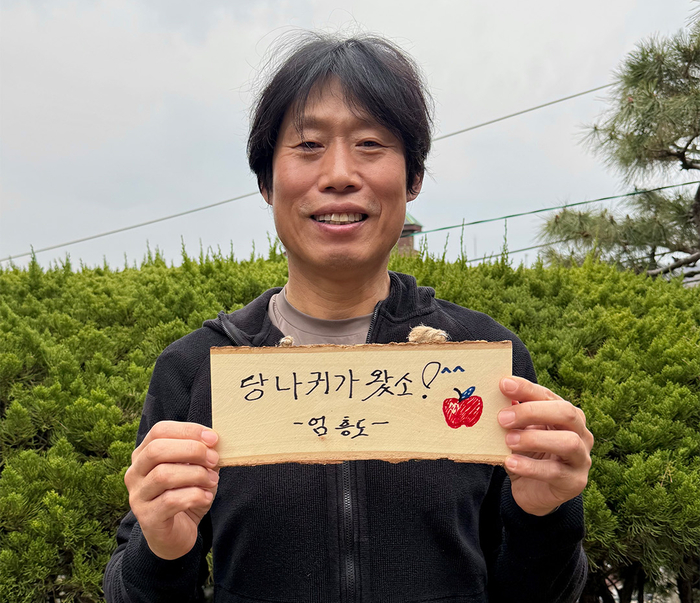 당나귀가 왔소! ^^
- 엄흥도 -